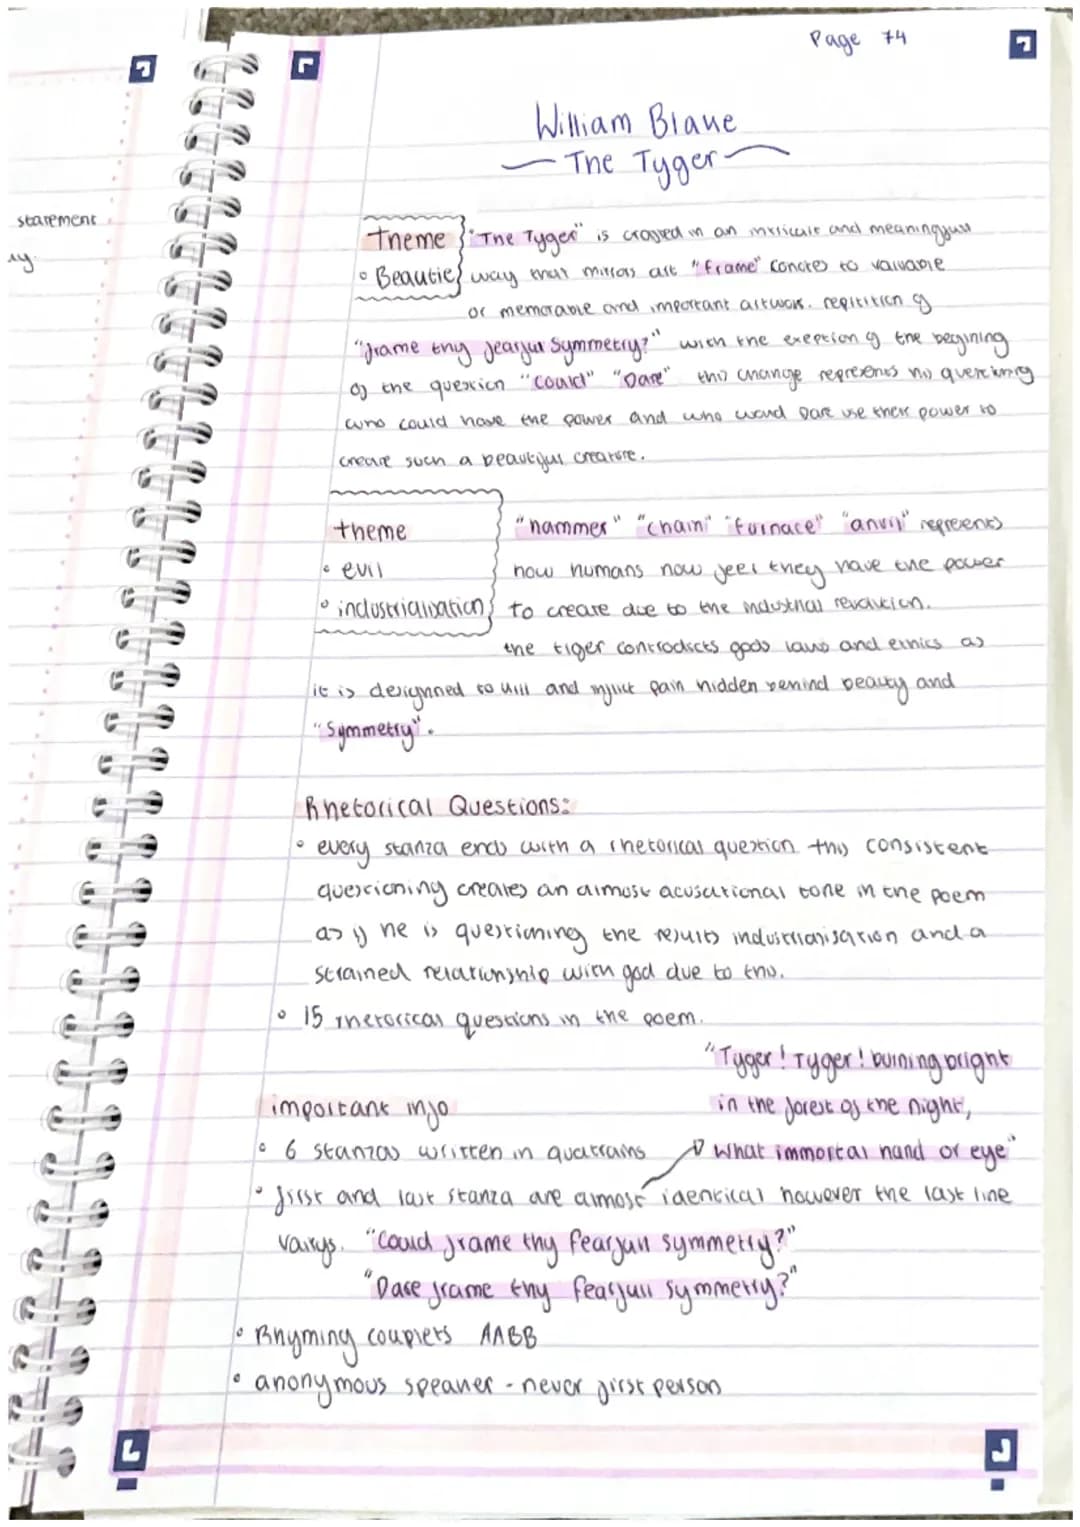 Page 74
William Blake
The Tyger
statement
ay
theme "The Tyger" is crafted in an intricate and meaningfull
• Beautie way that mirrors art "frame" conotes to valuable
or memorable and important artwork. repitition of
"frame thy fearful Symmetry?" with the exeption of the begining
of the question "Could" "Dare" this change represents his questioning
who could have the power and who would Dare use their power to
create such a beautiful creature.
theme "hammer" "chain" "furnace" "anvil" repreents
• evil how humans now feel they have the power
• industrialisation to create due to the industrial revolution.
the tiger contradicts gods laws and ethics as
it is designned to kill and inflict pain hidden behind beauty and
"Symmetry".
Rhetorical Questions:
• every stanza ends with a rhetorical question this consistent
questioning creates an almost acusational tone in the poem
as if he is questioning the results industrianisation and a
strained relationship with god due to this.
• 15 rhetorical questions in the poem.
"Tyger! Tyger! burning bright
important info in the forest of the night,
• 6 stanzas written in quatrains What immortal hand or eye"
• first and last stanza are almost identical however the last line
varys. "Could frame thy fearfull symmetry?"
"Dare frame thy fearfull symmetry?"
• Rhyming couplets AABB
• anonymous speaker - never first person